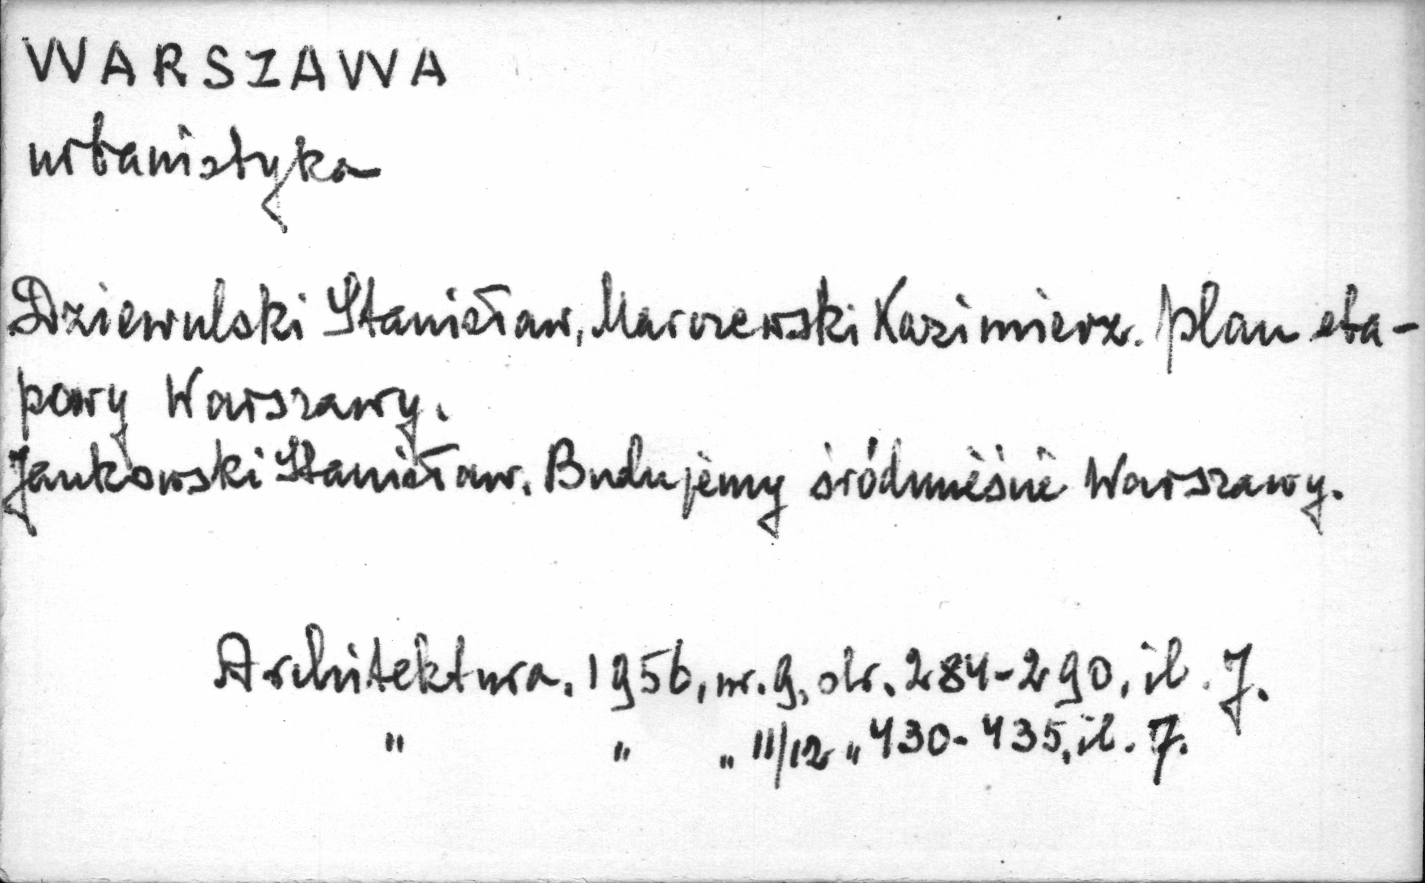 WARSZAWA
urbanistyka
Dziewulski Stanisław, Marczewski Kazimierz. Plan eta-
powy Warszawy.
Jankowski Stanisław. Budujemy śródmieście Warszawy.
Architektura. 1956, nr. 9, str. 284-290, il. 7.
" " " 11/12 " 430-435, il. 7.